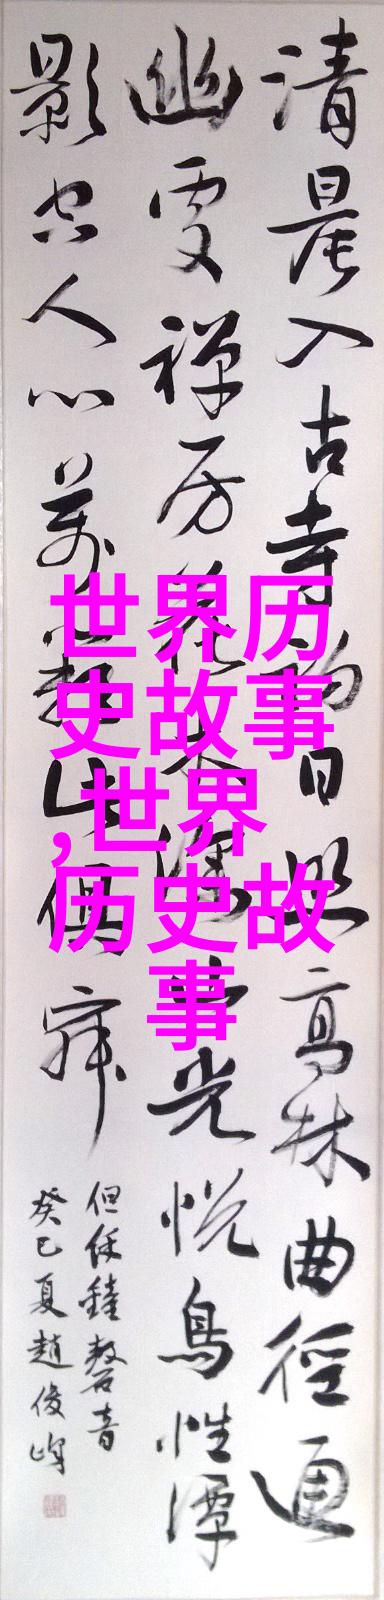 清晨入古寺初日照高林曲徑通
幽處禪房花木深山光悦鳥性潭
影空人心萬籟此俱寂
但餘鐘磬音
癸巳夏趙俊峰
世界历
史故事
,世界
历史故
事